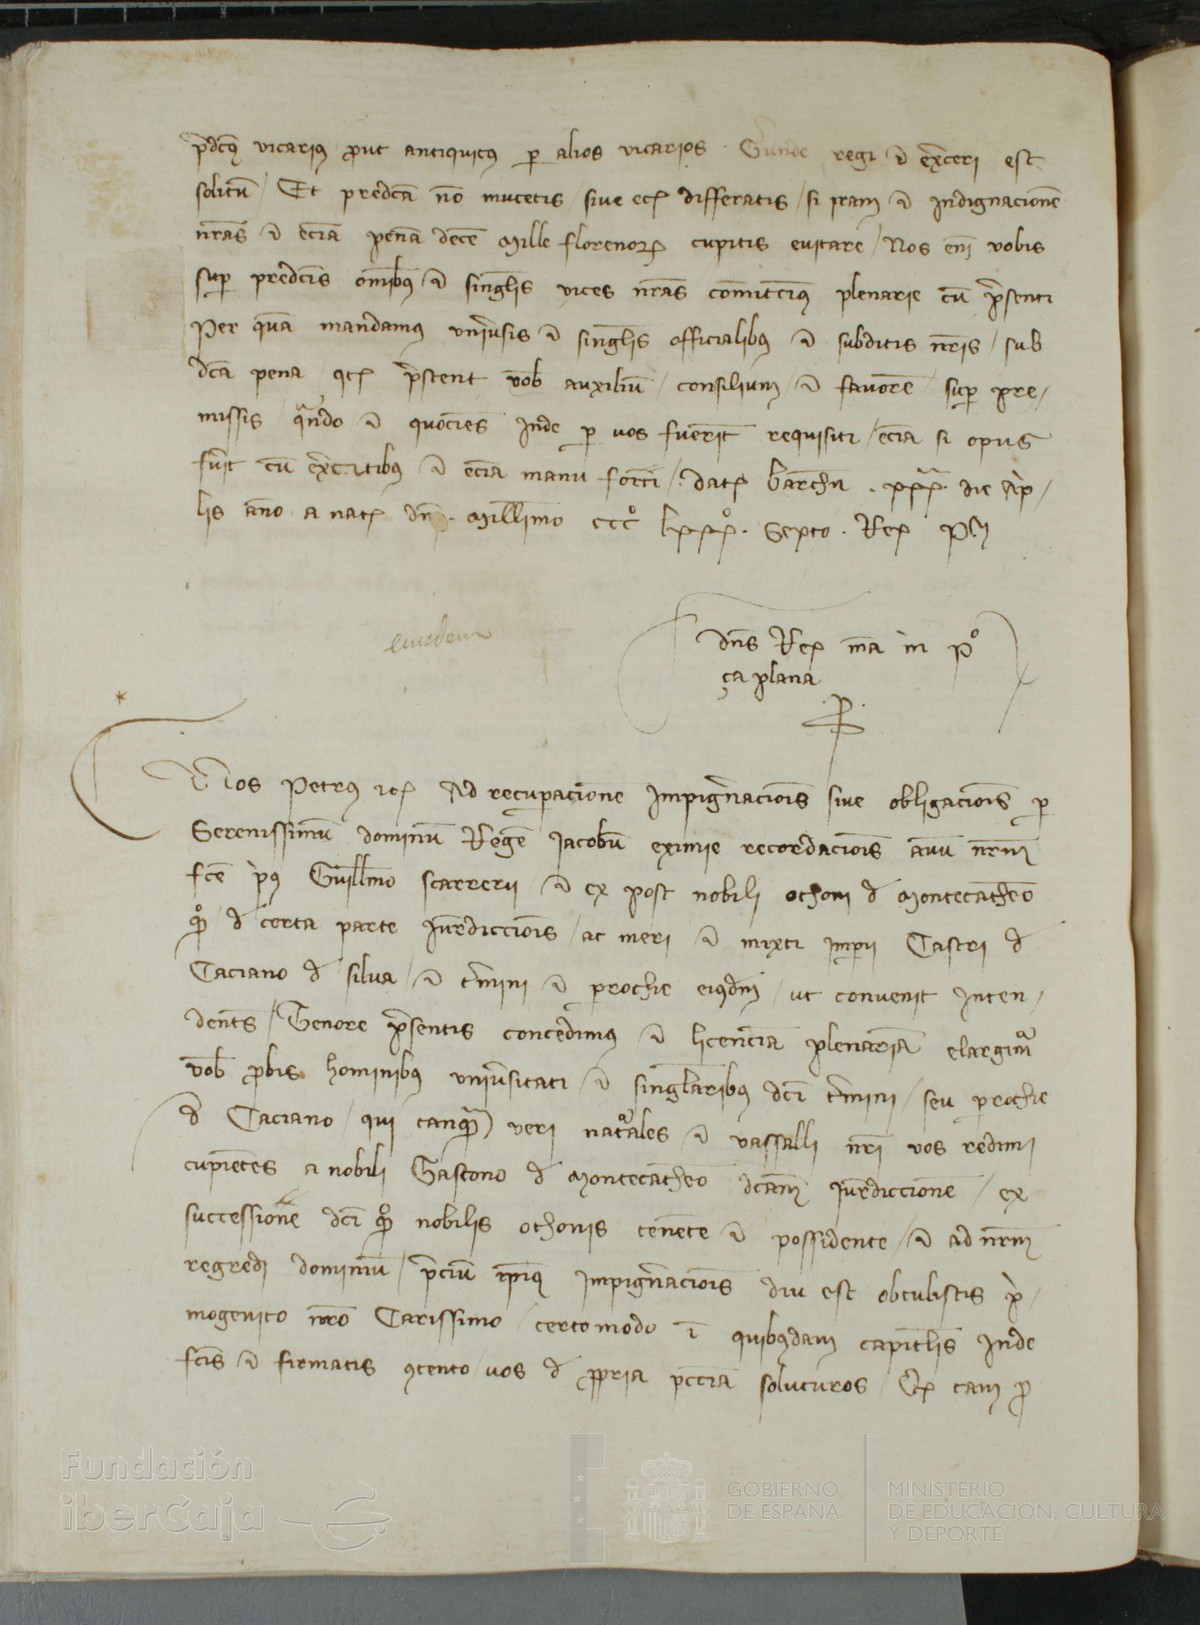 p̄dc̄ꝰ vicariꝰ ꝓut antiquitꝰ ꝑ alios vicarios Gerunde regi ⁊ ex̄ceri est
solitū / Et predc̄a nō mutetis / sive ecꝭ differatis / si iram ⁊ indignacionē
nr̄as ⁊ ecia pēna decē mille florenoꝝ cupitis evitare / Nos em̄ vobis
suꝑ predc̄is om̄ibꝰ ⁊ singl̄is vices nr̄as com̄ittimꝰ plenarie cū p̄senti
Per quā mandamꝰ univ̄sis ⁊ singl̄is officialibꝰ ⁊ subditis nr̄is / sub
dc̄a pena qꝭ p̄stent vob̄ auxiliū / consilium / ⁊ favorē suꝑ pre /
missis qn̄do ⁊ quociēs inde ꝑ vos fuer̄it requisiti / ecia si opus
fu̅it cū ex̄citibꝰ ⁊ ecia manu forti / datꝭ barch̄n . xxxª. die ap̄ /
lis año a natꝭ dn̄i. Mill̄imo cccº lxxxº. Septo . Rex Pꝰ
eiusdem
Dn̄s Rex m̄a in Pº
ça plana
*
Nos Petrꝰ ⁊cꝭ Ad recuꝑacionē impign̄acionis sive obligacionis ꝑ
Serenissimū dominū Regē Jacobū eximie recordacionis avū nr̄m
fc̄e p̄ꝰ Guill̄mo scarrerii ⁊ ex post nobili othoni đ Montecatheno
qº / đ certa parte jur̄diccionis / ac meri ⁊ mixti imp̄ii Castri đ
Caciano đ silva / ⁊ t̄mini ⁊ ꝑrochie eiꝰdm̄ / ut convenit inten /
dentes / Tenore p̄sentis concedimꝰ ⁊ licenciā plenariā elargimᵘʳ
vob̄ ꝓbis hominibꝰ univ̄sitati ⁊ singl̄aribꝰ dc̄i t̄mini / seu ꝑrochie
đ Caciano / qui tanqª veri natªales ⁊ vassalli nr̄i vos redimi
cupientes a nobili Gastono đ Montecatheno dc̄am jur̄diccionē / ex
successionē dc̄i qº nobilis othonis tenēte ⁊ possidente / ⁊ ad nr̄m
regredi dominiū / p̄ciū ip̄iꝰ impign̄acionis diu est obtulistis p̄ /
mogenito nr̄o Carissimo / certo modo ī quibꝰdam capitl̄is inde
fc̄is ⁊ firmatis ꝯtento / vos đ ꝓpria pc̄cia soluturos / Qꝭ tam ꝓ
Fundación
iberCaja
GOBIERNO
DE ESPAÑA
MINISTERIO
DE EDUCACIÓN, CULTURA
Y DEPORTE